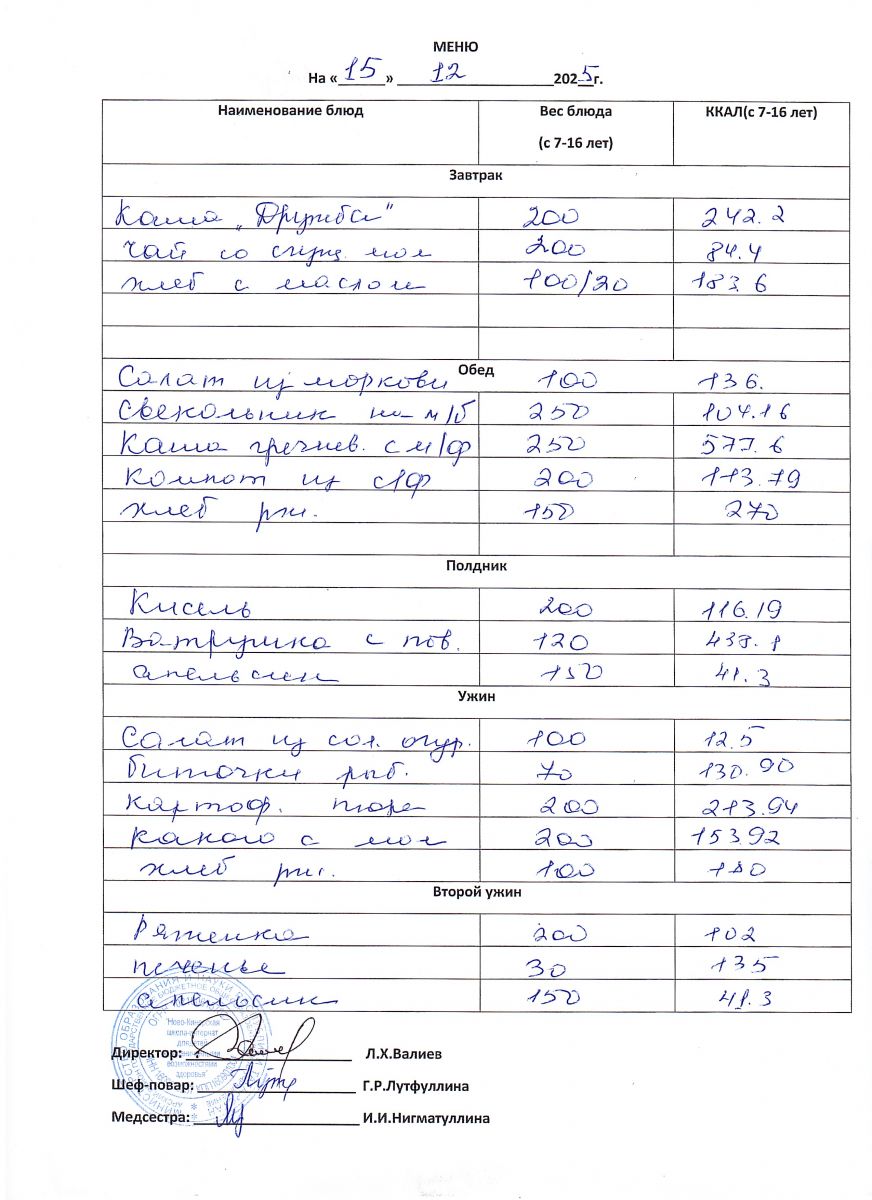 МЕНЮ
На «15» 12 2025г.
Наименование блюд Вес блюда (с 7-16 лет) ККАЛ(с 7-16 лет)
Завтрак
Каша „Дружба" 200 242.2
чай со сгущ. мол 200 84.4
хлеб с маслом 100/20 183.6
Обед
Салат из моркови 100 136.
Свекольник на м/б 250 104.16
Каша гречнев. с м/ф 250 577.6
Компот из с/ф 200 113.79
хлеб рж. 150 270
Полдник
Кисель 200 116.19
Ватрушка с пов. 120 438.1
апельсин 150 41.3
Ужин
Салат из сол. огур. 100 12.5
биточки рыб. 70 130.90
картоф. пюре 200 213.94
какао с мол 200 153.92
хлеб рж. 100 180
Второй ужин
Ряженка 200 102
печенье 30 135
апельсин 150 41.3
Директор: Л.Х.Валиев
Шеф-повар: Г.Р.Лутфуллина
Медсестра: И.И.Нигматуллина